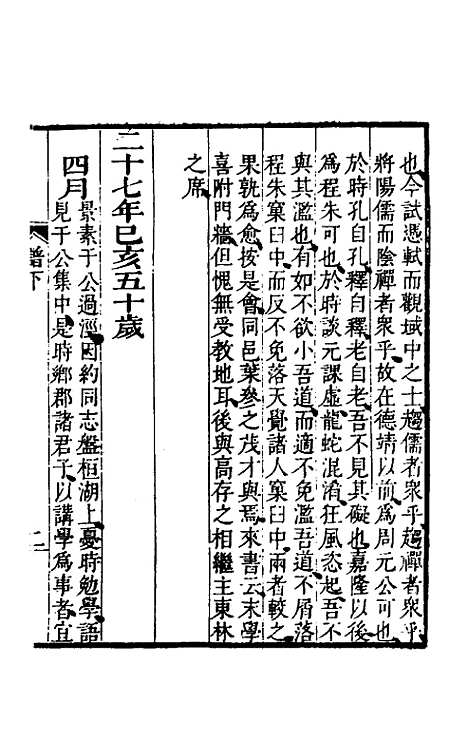 也今試憑軾而觀域中之士趨儒者衆乎趨禪者衆乎
將陽儒而陰禪者衆乎故在德靖以前爲周元公可也
於時孔自孔釋自釋老自老吾不見其礙也嘉隆以後
爲程朱可也於時談元課虛龍蛇混淆狂風恣起吾不
與其濫也有如不欲小吾道而適不免濫吾道不屑落
程朱窠臼中而反不免落天覺諸人窠臼中兩者較之
果孰爲愈按是會同邑葉參之茂才與焉來書云末學
喜附門牆但愧無受教地耳後與高存之相繼主東林
之席
二十七年己亥五十歲
四月景素于公過涇因約同志盤桓湖上憂時勉學語
見于公集中是時鄉郡諸君子以講學爲事者宜
譜下
二